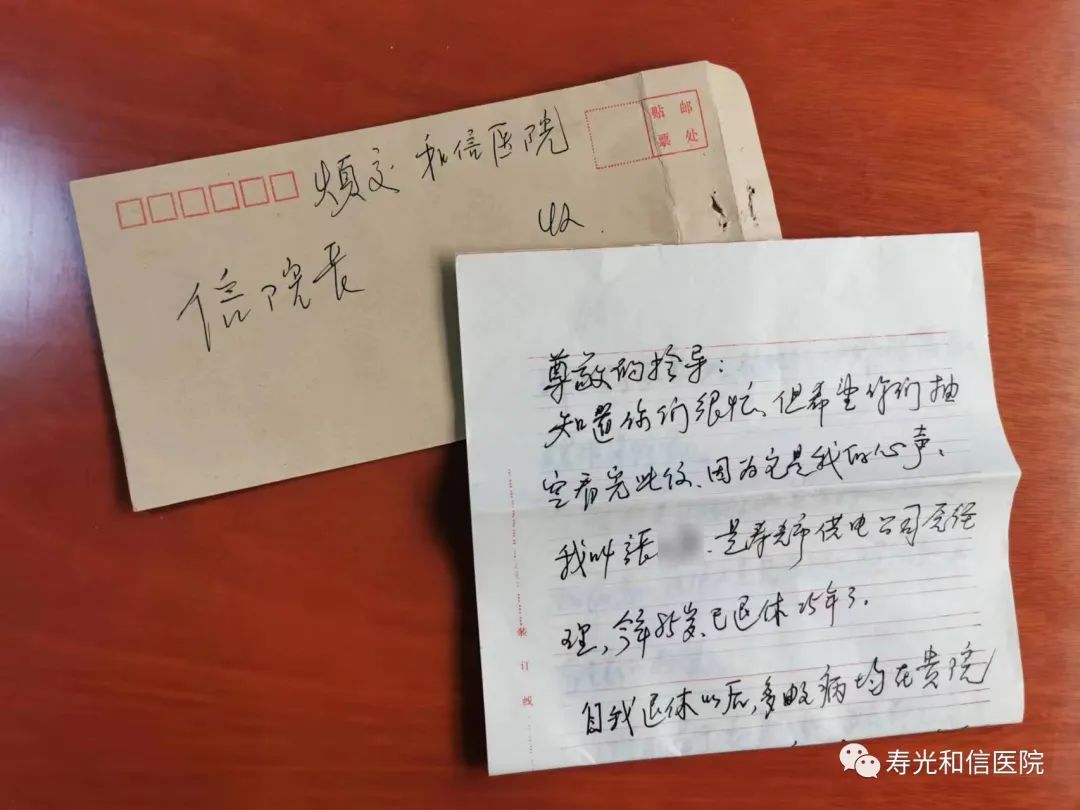 烦交 和信医院
贴 邮
票 处
信院长
收.
尊敬的领导:
知道你们很忙、但希望你们抽
空看完此信、因为它是我的心声、
我叫張 . 是寿光市供电公司原经
理, 今年85岁、已退休25年了.
自我退休以后, 多次病均在贵院
装订线
寿光和信医院